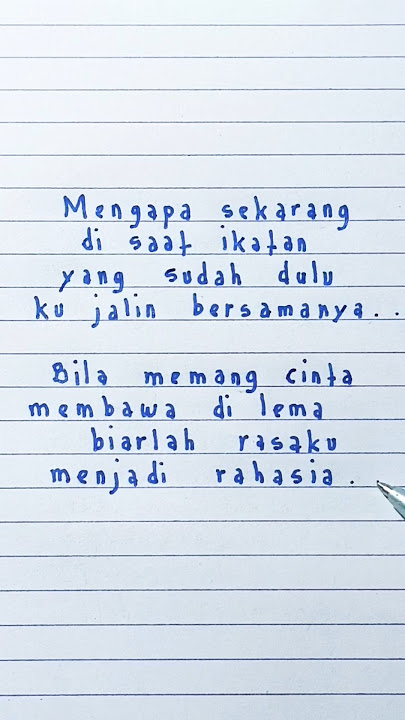 Mengapa sekarang
di saat ikatan
yang sudah dulu
ku jalin bersamanya..
Bila memang cinta
membawa di lema
biarlah rasaku
menjadi rahasia.